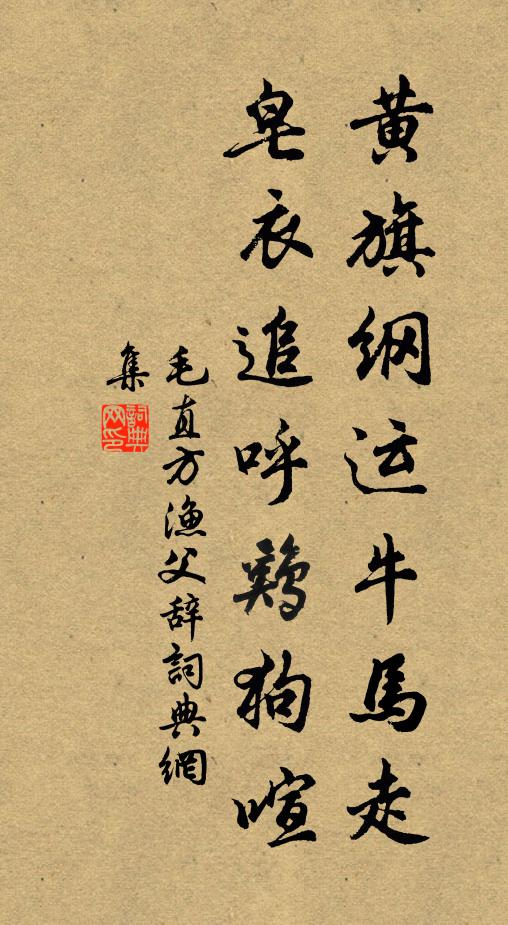 黄旗纲运牛馬走
皂衣追呼鷄狗喧
毛直方漁父辞詞典網
集
詞典网印